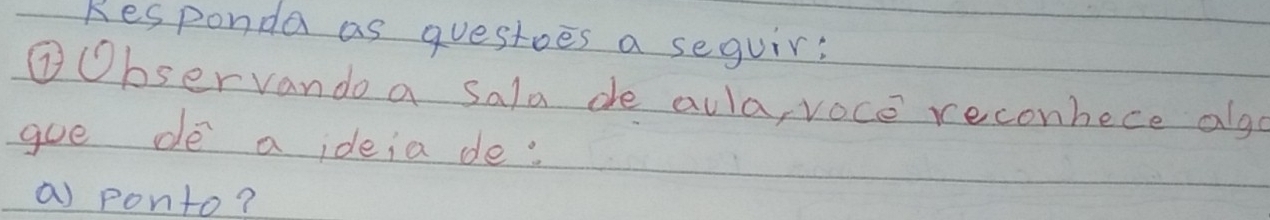 Responda as questões a seguir:
① Observando a sala de aula, você reconhece algo
que dê a ideia de:
a) ponto?